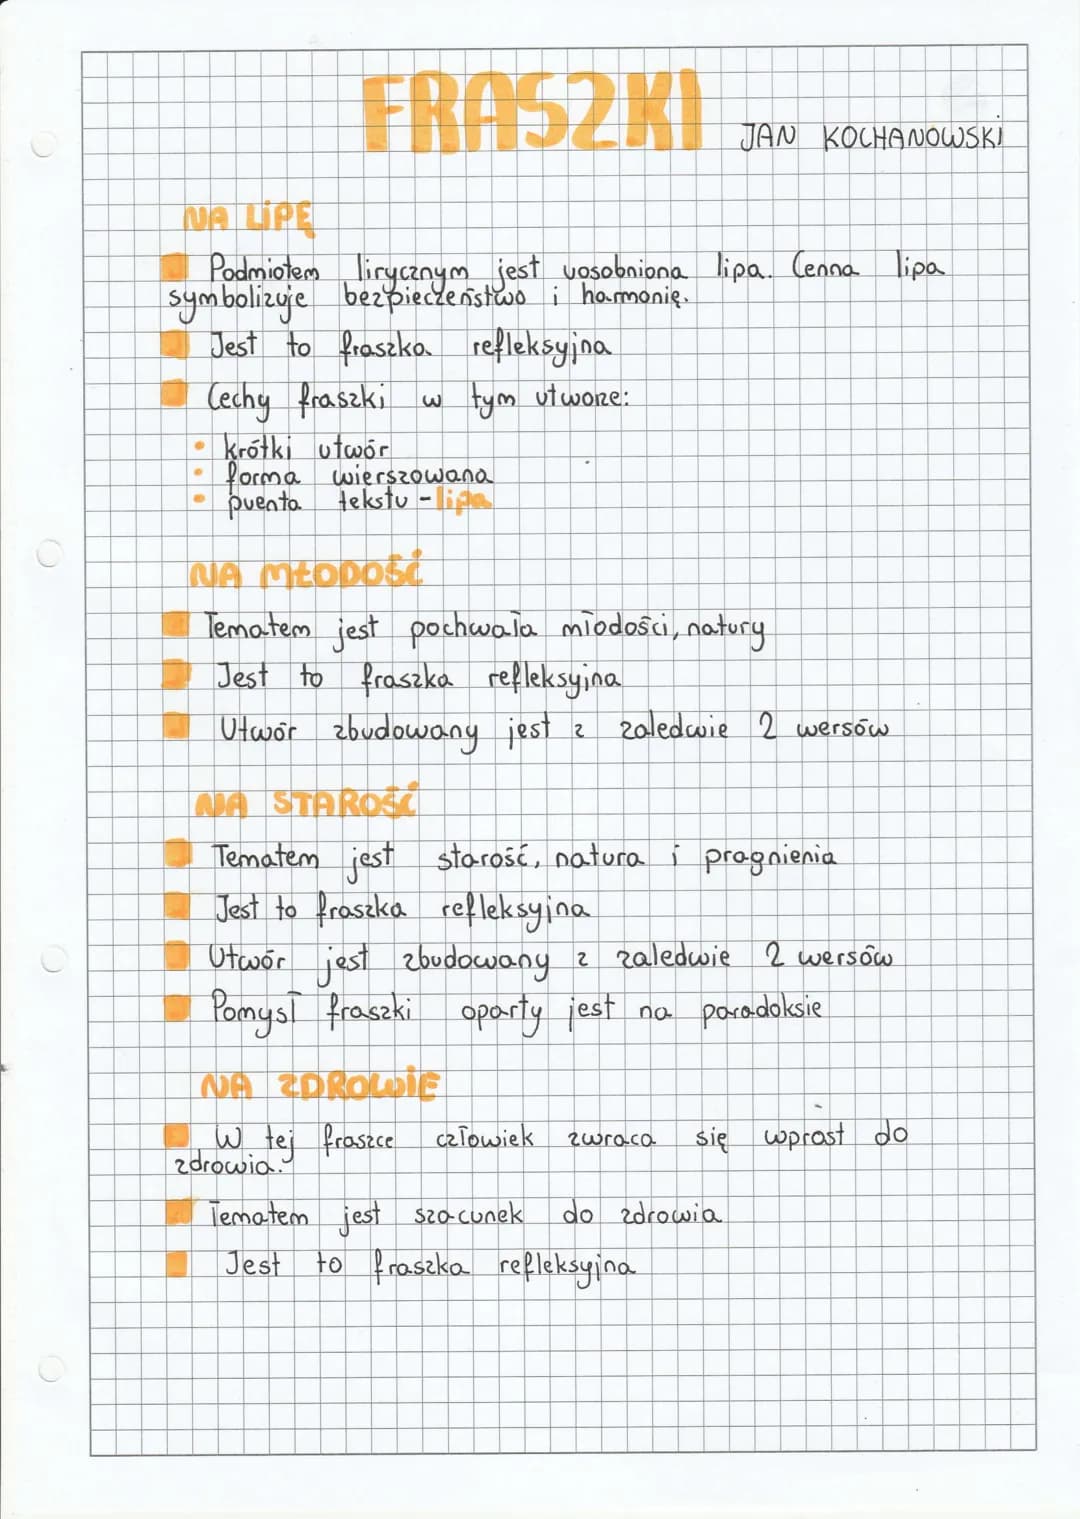 FRASZKI
JAN KOCHANOWSKI
NA LIPĘ
Podmiotem lirycznym jest uosobniona lipa. Cenna lipa
symbolizuje bezpieczeństwo i harmonię.
Jest to fraszka refleksyjna
Cechy fraszki w tym utworze:
• krótki utwór
• forma wierszowana
• puenta tekstu - lipa
NA MŁODOŚĆ
Tematem jest pochwała młodości, natury
Jest to fraszka refleksyjna
Utwór zbudowany jest z zaledwie 2 wersów
NA STAROŚĆ
Tematem jest starość, natura i pragnienia
Jest to fraszka refleksyjna
Utwór jest zbudowany z zaledwie 2 wersów
Pomysł fraszki oparty jest na paradoksie
NA ZDROWIE
W tej fraszce człowiek zwraca się wprost do
zdrowia.
Tematem jest szacunek do zdrowia
Jest to fraszka refleksyjna